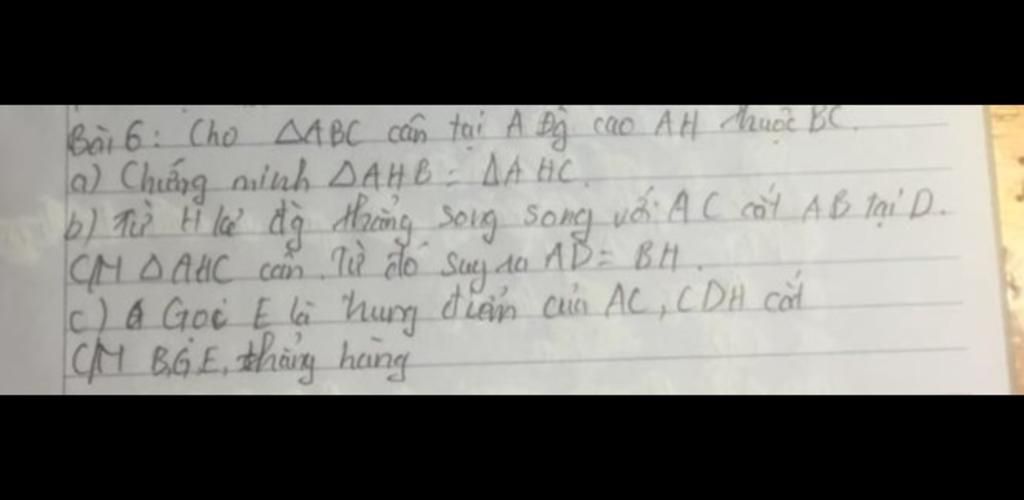 Bài 6: Cho ΔABC cân tại A Đg cao AH thuộc BC.
a) Chứng minh ΔAHB = ΔAHC.
b) Từ H kẻ đg thẳng song song với AC cắt AB tại D.
CM ΔAHC cân. Từ đó suy ra AD = BH.
c) Gọi E là trung điểm của AC, CDH cắt
CM B,G,E, thẳng hàng